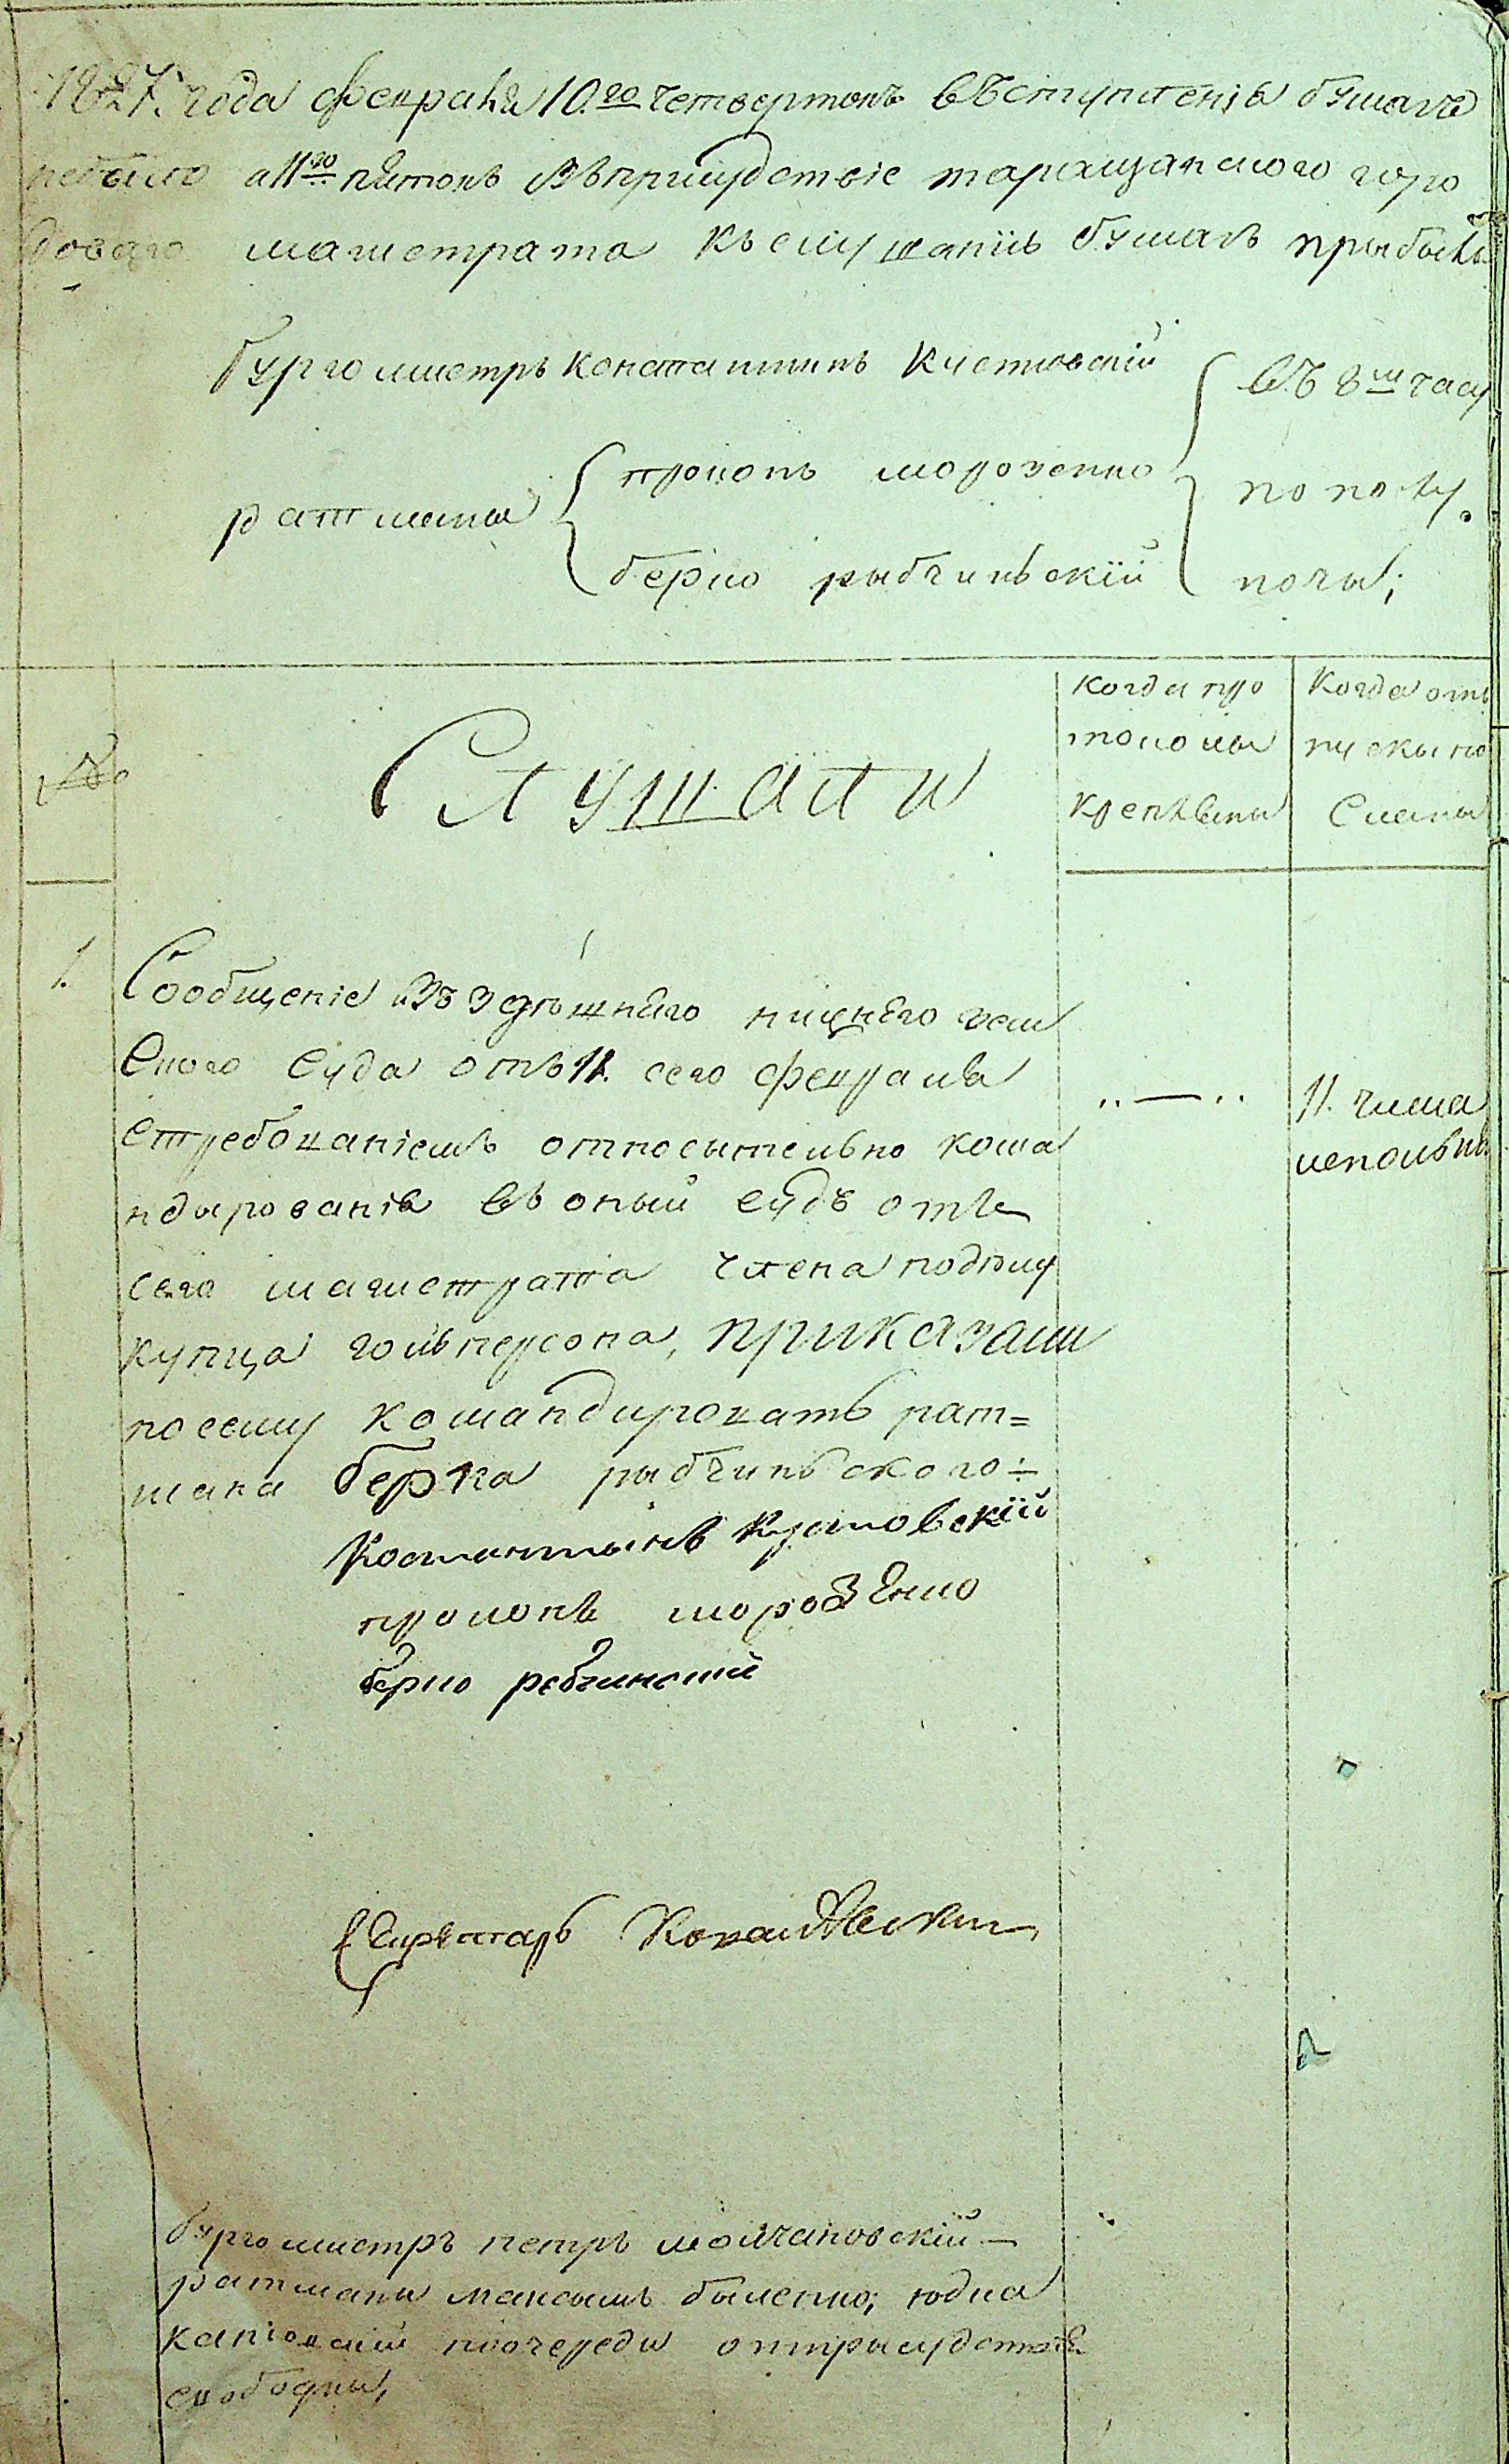 1827. года февраля 10.го четвертокъ въступленія бумагъ
небыло а 11го пятокъ въприсудствіе таращанского горо
доваго магистрата къ слушанію бумагъ прыбыли
бургомистръ Константинъ Кистовскій
ратманы
прокопъ морозенко
берко рыбчиньскій
въ 8м часу
по полу.
ночы;
№
Слушали
Когда про
токолы
крепленны
Когда отъ
пускы по
сланы
1.
Сообщеніе изъ здѣшняго нижнего зем
ского суда отъ 11. сего февраля
стребованіемъ относытельно кома
ндырованія въ оный судъ отъ
сего магистрата члена подѣлу
купца гольперсона, приказали
посему командировать рат=
мана берка рыбчиньского÷
.. — ..
11. числа
исполнн
Костантынъ Кустовскій
прокопъ морозенко
берко ребчинский
Секретарь
бургомистръ петръ молчановскій —
ратманы максымъ быленко; юдка
каніовскій поочереди отпрысудствія
свободны,